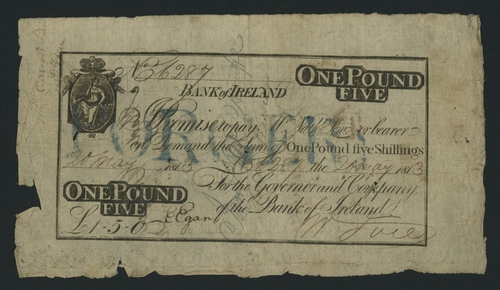 No 6287
ONE POUND
FIVE
BANK of IRELAND
FORGED
I Promise to pay or bearer
on Demand the Sum of One Pound five Shillings
20 May 1813 6287 the 20 May 1813
For the Governor and Company
of the Bank of Ireland
ONE POUND
FIVE
£1-5-0
Egan